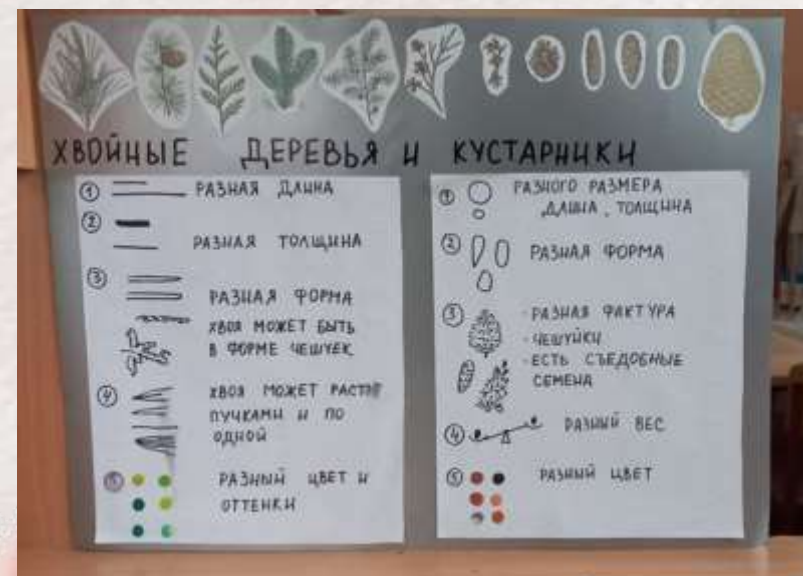 ХВОЙНЫЕ ДЕРЕВЬЯ И КУСТАРНИКИ
① РАЗНАЯ ДЛИНА
② РАЗНАЯ ТОЛЩИНА
③ РАЗНАЯ ФОРМА
ХВОЯ МОЖЕТ БЫТЬ
В ФОРМЕ ЧЕШУЕК
④ ХВОЯ МОЖЕТ РАСТИ
ПУЧКАМИ И ПО
ОДНОЙ
⑤ РАЗНЫЙ ЦВЕТ И
ОТТЕНКИ
① РАЗНОГО РАЗМЕРА
ДЛИНА, ТОЛЩИНА
② РАЗНАЯ ФОРМА
③ · РАЗНАЯ ФАКТУРА
· ЧЕШУЙКИ
· ЕСТЬ СЪЕДОБНЫЕ
СЕМЕНА
④ РАЗНЫЙ ВЕС
⑤ РАЗНЫЙ ЦВЕТ